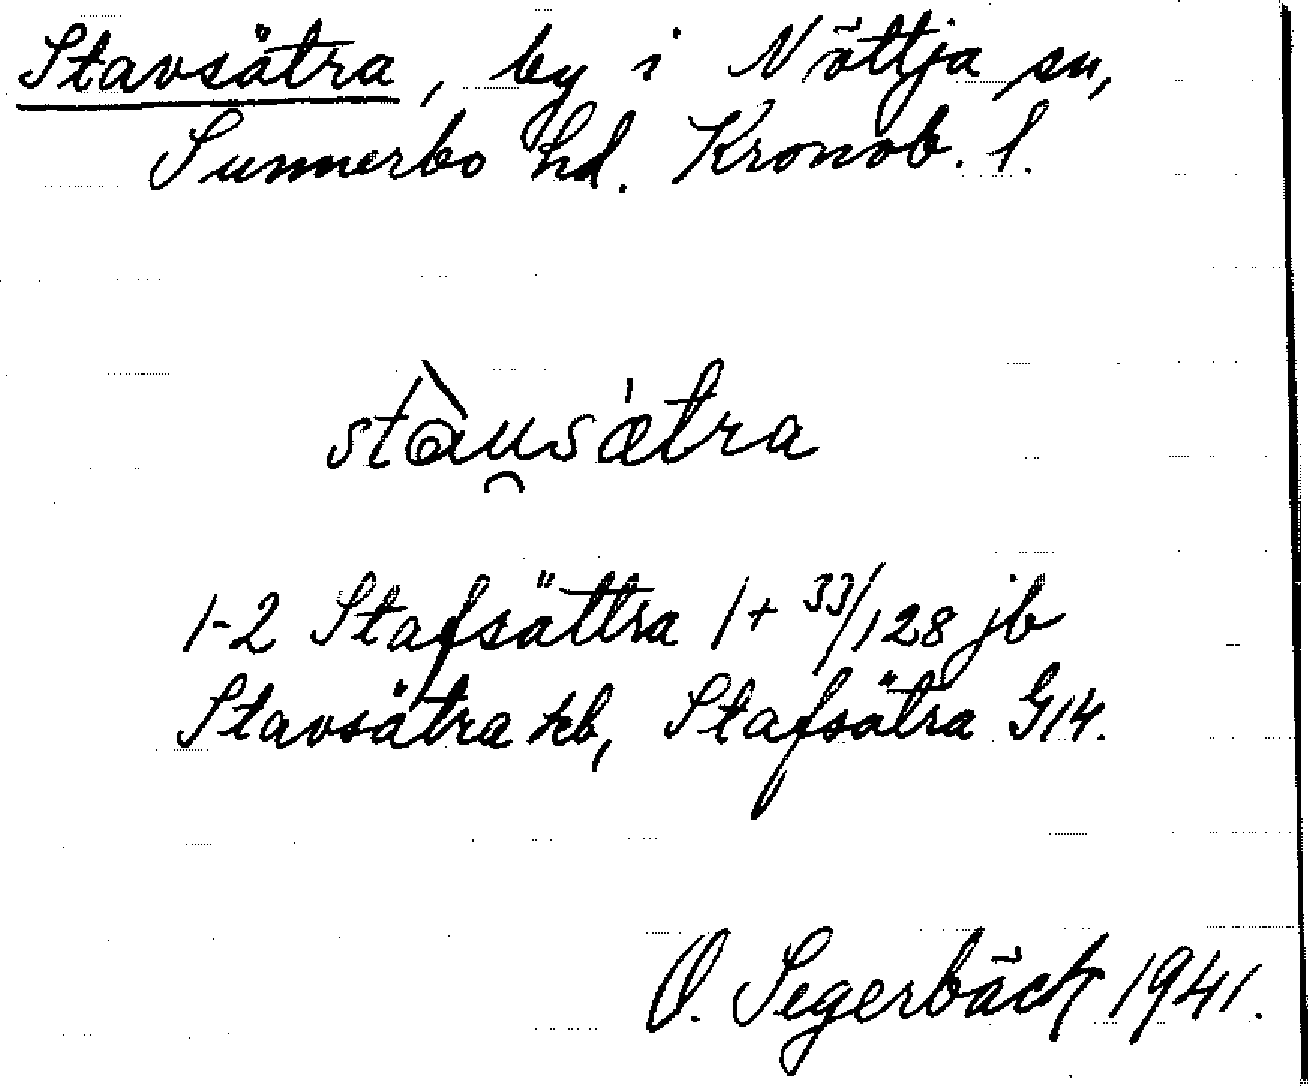 Stavsätra, by i Nöttja sn,
Sunnerbo hd. Kronob. l.
stàu̯sǽtra
1-2 Stafsättra 1+ 33/128 jb
Stavsätra kb, Stafsätra G14.
O. Segerbäck 1941.